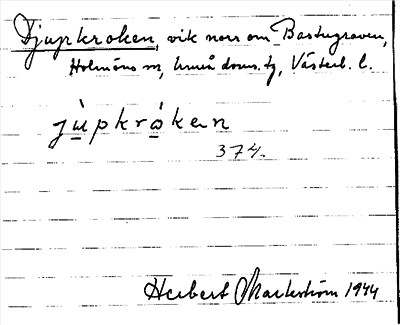 Djupkroken, vik norr om Bastugraven,
Holmöns sn, Umeå doms. tg, Västerb. l.
jùpkròken
374.
Herbert Markström 1944